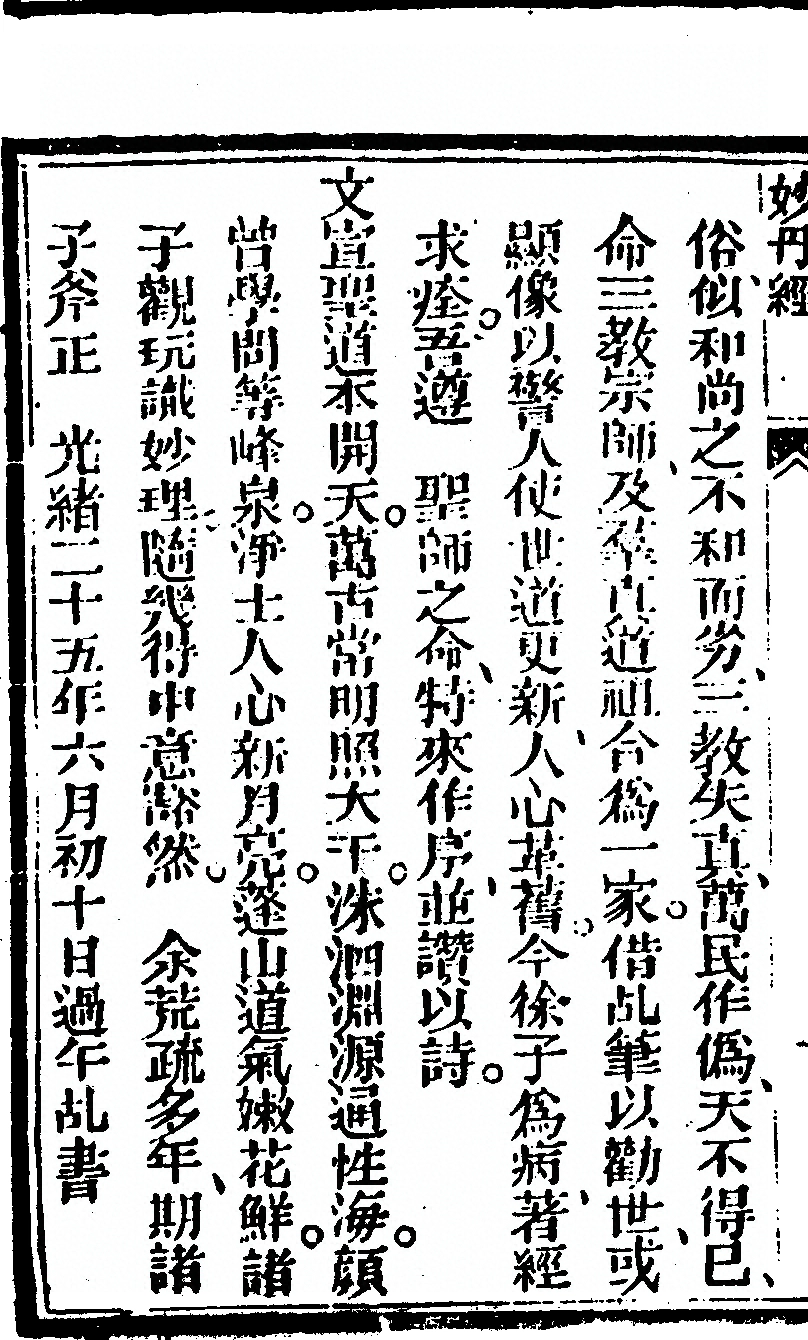 妙丹經
俗似和尚之不和而劣三教失真萬民作僞天不得已
命三教宗師及羣真道祖合爲一家借乩筆以勸世或
顯像以警人使世道更新人心革舊今徐子爲病著經
求痊吾遵 聖師之命特來作序並讚以詩
文宣聖道本開天萬古常明照大千洙泗淵源通性海顔
曾學問等峰泉淨土人心新月亮蓬山道氣嫩花鮮諸
子觀玩識妙理隨幾得中意豁然 余荒疏多年期諸
子斧正 光緒二十五年六月初十日過午乩書